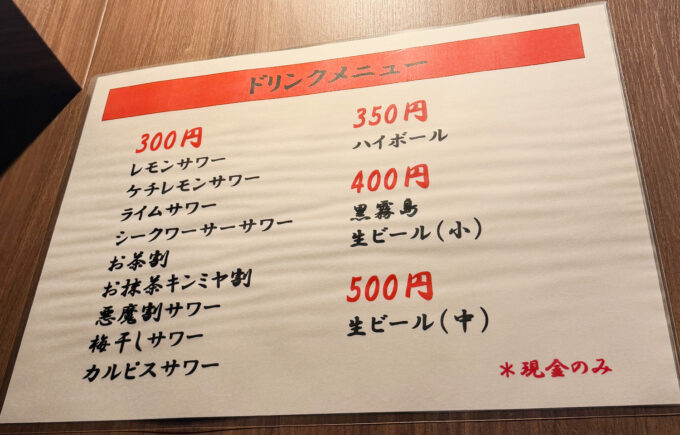 ドリンクメニュー
300円
レモンサワー
ケチレモンサワー
ライムサワー
シークワーサーサワー
お茶割
お抹茶キンミヤ割
悪魔割サワー
梅干しサワー
カルピスサワー
350円
ハイボール
400円
黒霧島
生ビール(小)
500円
生ビール(中)
*現金のみ